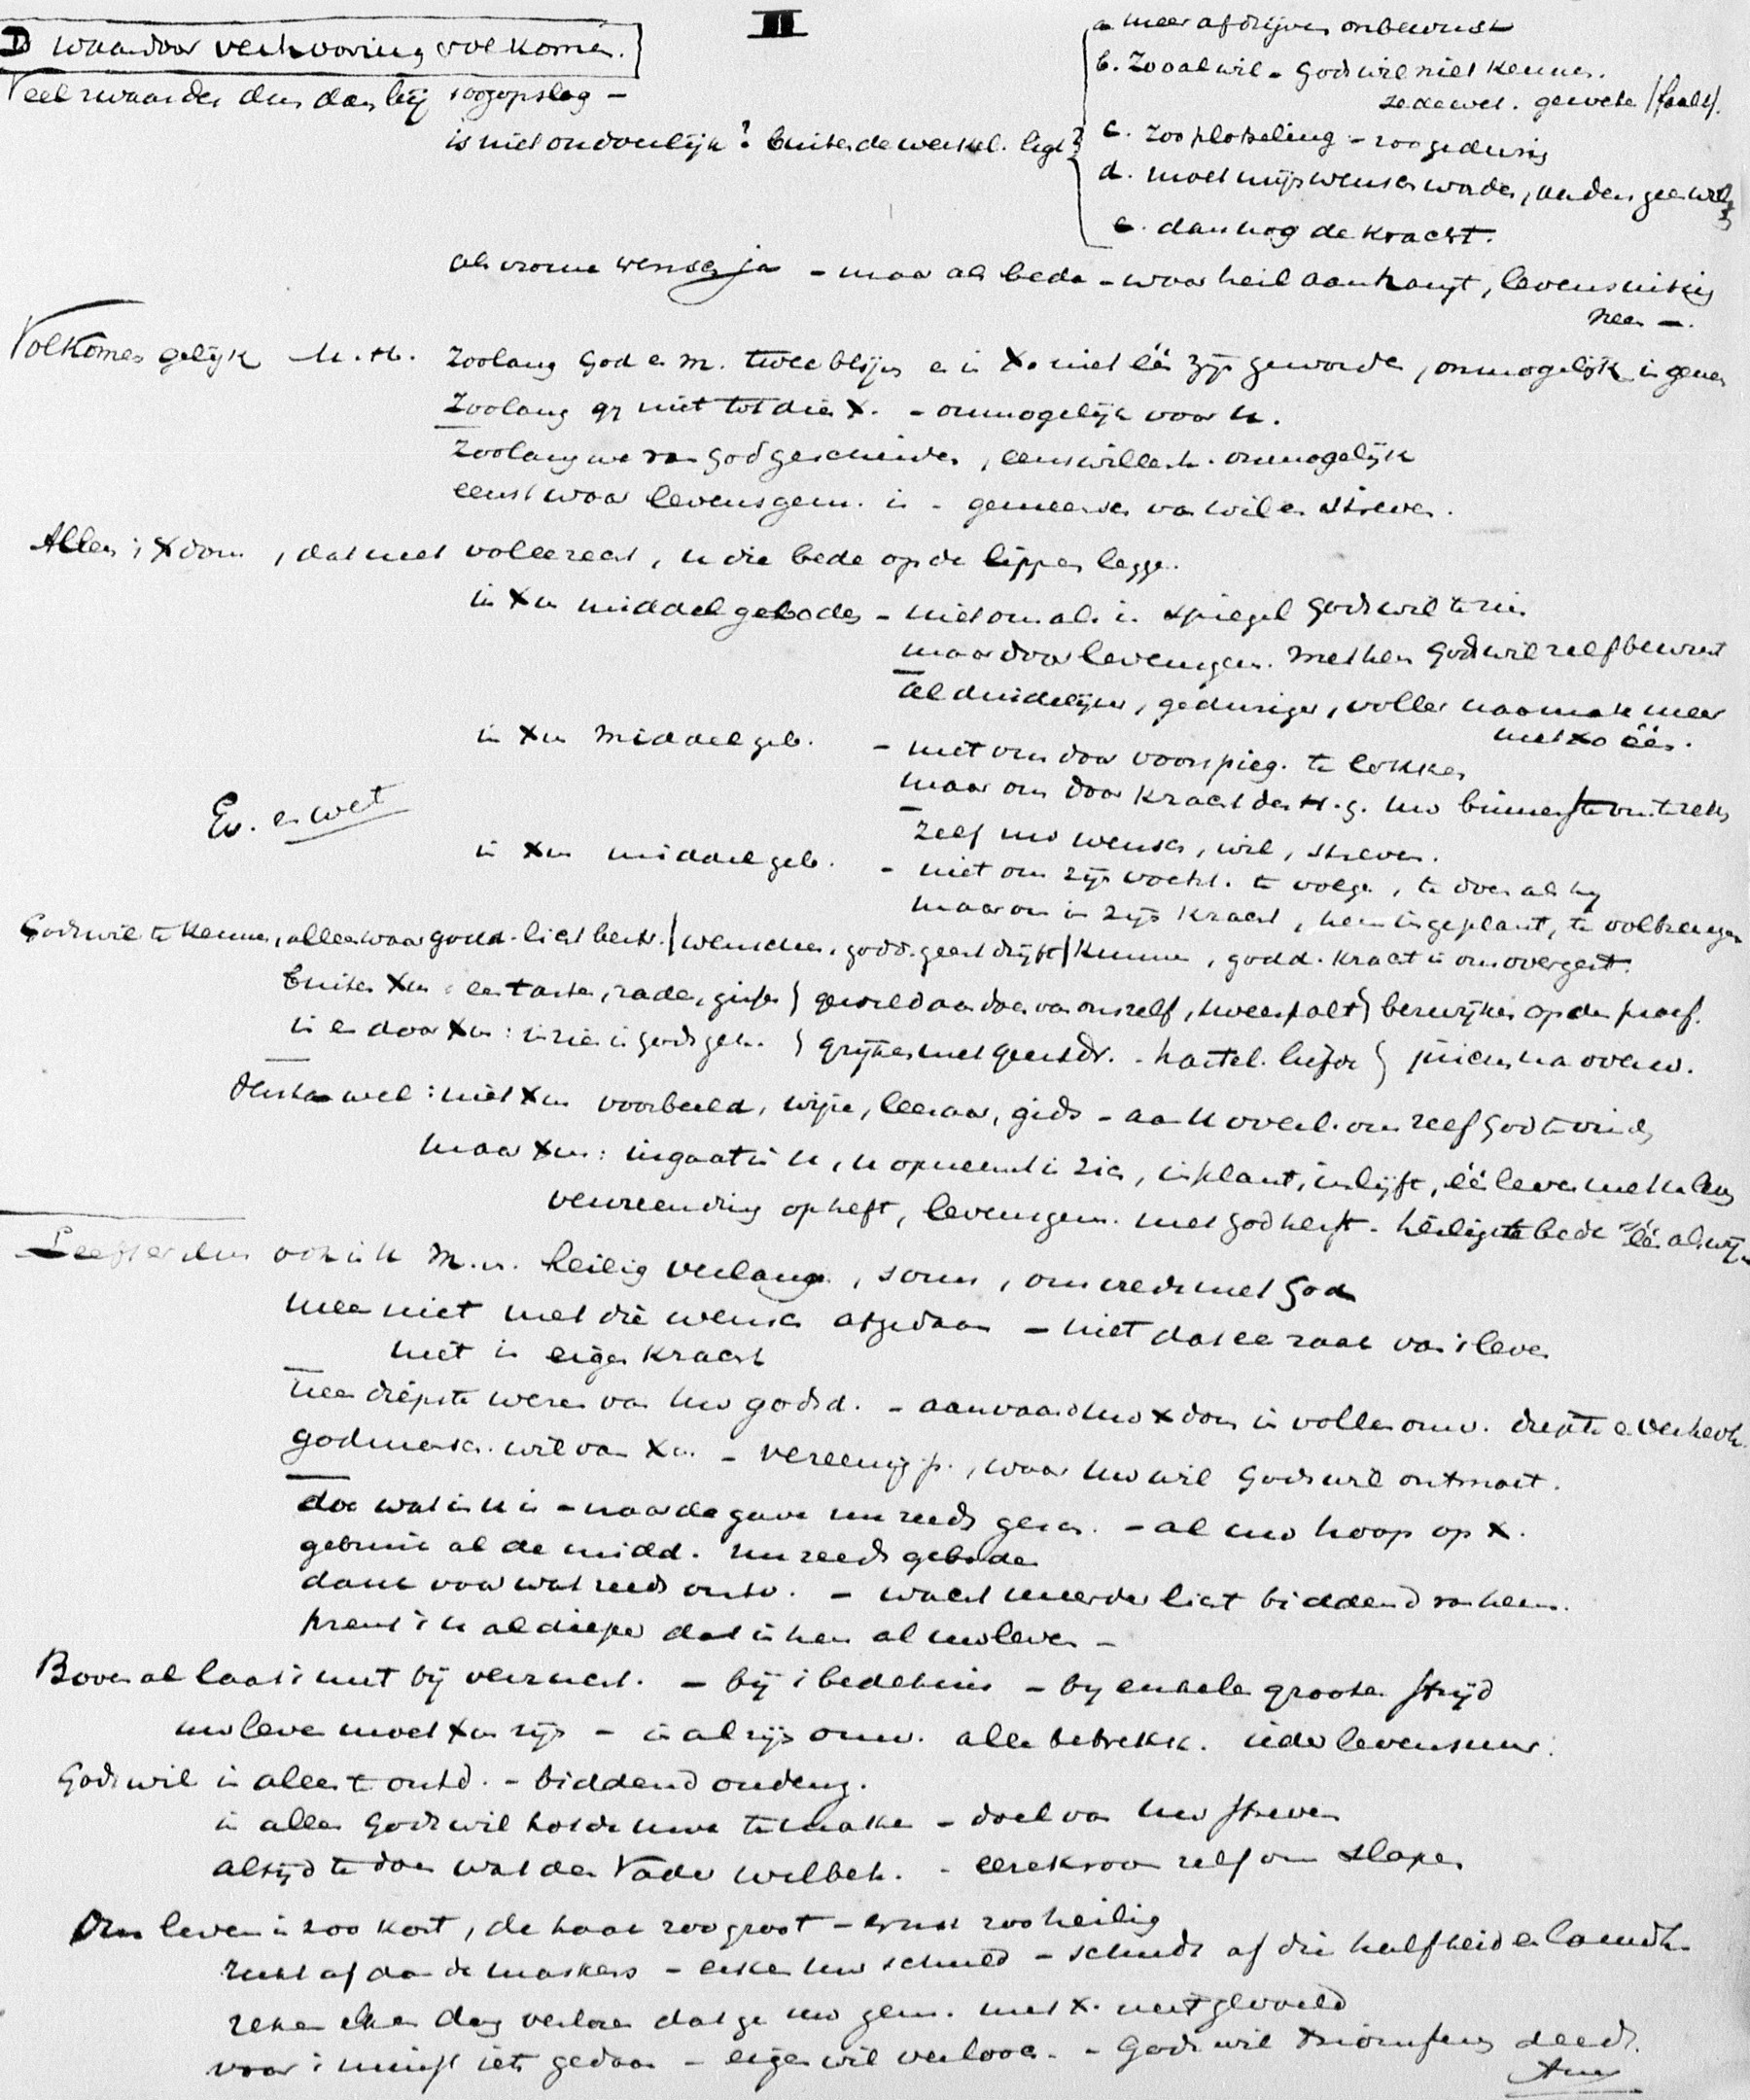 II
D waardoor verhooring volkomen.
Veel zwaarder dus dan bij oogopslag –
is niet ondoenlijk? buiten de werkel. ligt?
a. meer afdrijven onbewust
b. Zooal wil – Gods wil niet kennen.
zedewet. geweten / faalt/.
c. zoo plotseling – zoo gedurig
d. moet mijn wensch worden, anders geen wil
e. dan nog de kracht.
als vrome wensch ja – maar als bede – waar heil aan hangt, levensuiting
neen –.
Volkomen gelijk m. H. Zoolang God en m. twee blijven en in X. niet één zijn geworden, onmogelijk in
Zoolang gij niet tot dien X. – onmogelijk voor u.
Zoolang we van God gescheiden, eenswillendh. onmogelijk
eenst waar levensgem. is – gemeensch van wil en streven.
Alleen 't Xdom, dat met volle recht, u die bede op de lippen legge.
in Xus middel geboden – niet om als in spiegel Gods wil te zien
maar door levensgem. met hem Gods wil zelfbewust
al duidelijker, geduriger, voller naarmate meer
met Xo één.
in Xus middel geb. – niet om door voorspieg. te lokken
maar om door kracht des H. G. uw binnenste om te zetten
Ev. en wet
zelf uw wensch, wil, streven.
in Xus middel geb. – niet om zijn voetst. te volgen, te doen als hij
maar om in zijn kracht, hem ingeplant, te volbrengen
Gods wil te kennen, alleen waar godd. licht best. / wenschen, godd. geest drijft / kunnen, godd. kracht in ons overgeert.
buiten Xus een tasten, raden, gissen } geweld aandoen van onszelf, tweespalt } bezwijken op de proef.
in en door Xus: inzien in Gods geh. } grijpen met geestdr. – hartel. liefde } juichen na overw.
Versta wel: niet Xus voorbeeld, wijze, leeraar, gids – aan u overl. om zelf God te vinden
maar Xus: ingaat in u, u opneemt in zich, inplant, inlijft, één leven met u leeft
vervreemding opheft, levensgem. met God herst. – heiligste bede "één als wij"
Leeft er dus ook in u M. v. heilig verlangen, soms, om vrede met God
neen niet met die wensch afgedaan – niet dat een zaak van 't leven
niet in eigen kracht
neen diepste wezen van uw godsd. – aanvaard uw Xdom in vollen omv. diepte en verhevh.
godmensch. wil van Xus – vereenig p., waar uw wil Gods wil ontmoet.
doe wat in u is – naar de gave nu reeds gesch. – al uw hoop op X.
gebruik al de midd. nu reeds geboden
dank voor wat reeds ontv. – wacht meerder licht biddend van hem.
prent 't u al dieper dat in hem al uw leven –
Bovenal laat 't niet bij verzucht. – bij 't bedehuis – bij enkele groote strijd
uw leven moet Xus zijn – in al zijn omv. alle betrekk. ieder levensuur.
Gods wil in alles te ontd. – biddend onderz.
in alles Gods wil tot de uwe te maken – doel van uw streven
altijd te doen wat den Vader welbeh. – eerekroon zelf om slapen
Ons leven is zoo kort, de taak zoo groot – ernst zoo heilig
rukt af dan de maskers – erken uw schuld – schudt af die halfheid en lauwdh.
reken elken dag verloren dat ge uw gem. met X. niet gevoeld
voor 't minst iets gedaan – eigen wil verlooch. – Gods wil triomfeeren deedt.
Amen